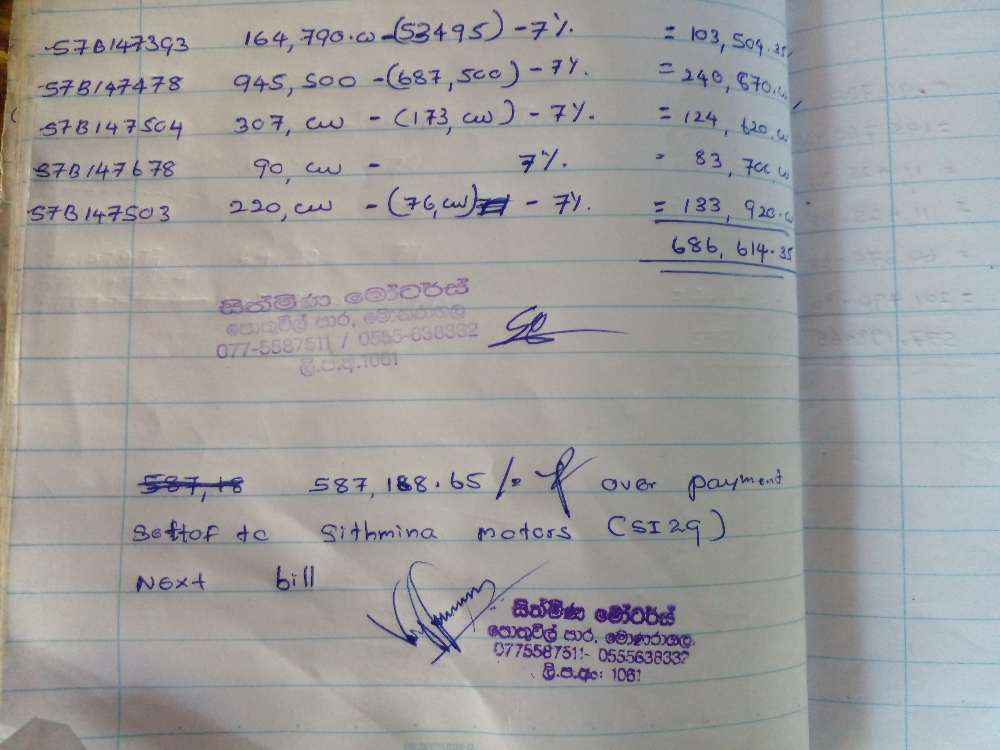 S7B147393 164,790.00 -(53495) - 7% = 103,504.35
S7B147478 945,500 -(687,500) - 7% = 240,870.00
S7B147504 307,00 - (173,00) - 7% = 124,620.00
S7B147678 90,00 - 7% = 83,700.00
S7B147503 220,00 - (76,00) - 7% = 133,920.00
686,614.35
සිත්මිණ මෝටර්ස්
පොතුවිල් පාර, මොනරාගල
077-5587511 / 0555-638332
ලි.ප.අ.1061
587,18 587,188.65/= over payment
settof to Sithmina motors (SI29)
Next bill
සිත්මිණ මෝටර්ස්
පොතුවිල් පාර, මොණරාගල.
0775587511- 0555638332
ලි.ප.අං: 1061